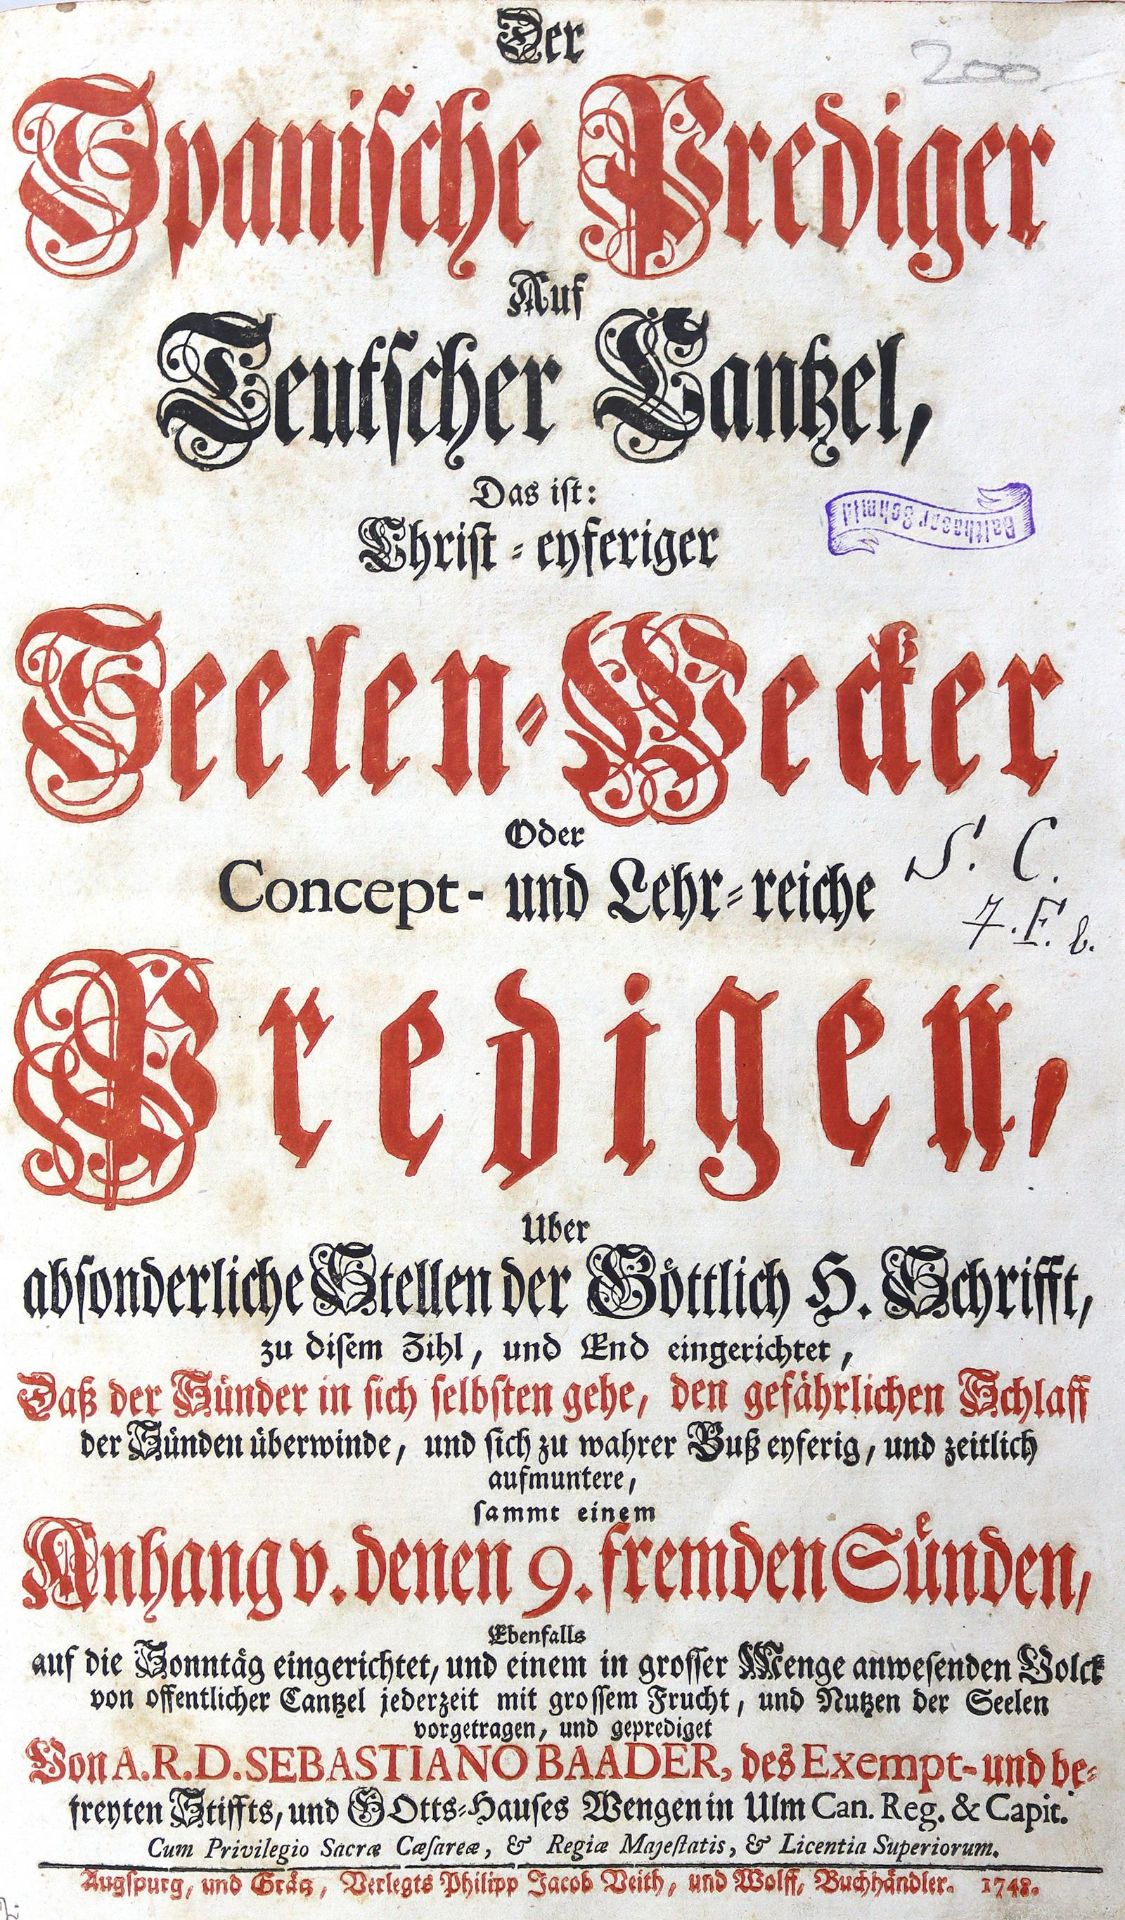 Der
200
Spanische Prediger
Auf
Teutscher Cantzel,
Das ist:
Balthasar Schmid
Christ-eyferiger
Seelen-Wecker
Oder
Concept- und Lehr-reiche
S. C.
7. F. b.
Predigen,
Uber
absonderliche Stellen der Göttlich H. Schrifft,
zu disem Zihl, und End eingerichtet,
Daß der Sünder in sich selbsten gehe, den gefährlichen Schlaff
der Sünden überwinde, und sich zu wahrer Buß eyferig, und zeitlich
aufmuntere,
sammt einem
Anhang v. denen 9. fremden Sünden,
Ebenfalls
auf die Sonntäg eingerichtet, und einem in grosser Menge anwesenden Volck
von offentlicher Cantzel jederzeit mit grossem Frucht, und Nutzen der Seelen
vorgetragen, und geprediget
Von A.R.D. SEBASTIANO BAADER, des Exempt- und be-
freyten Stiffts, und GOtts-Hauses Wengen in Ulm Can. Reg. & Capit.
Cum Privilegio Sacræ Cæsareæ, & Regiæ Majestatis, & Licentia Superiorum.
Augspurg, und Grätz, Verlegts Philipp Jacob Veith, und Wolff, Buchhändler. 1748.